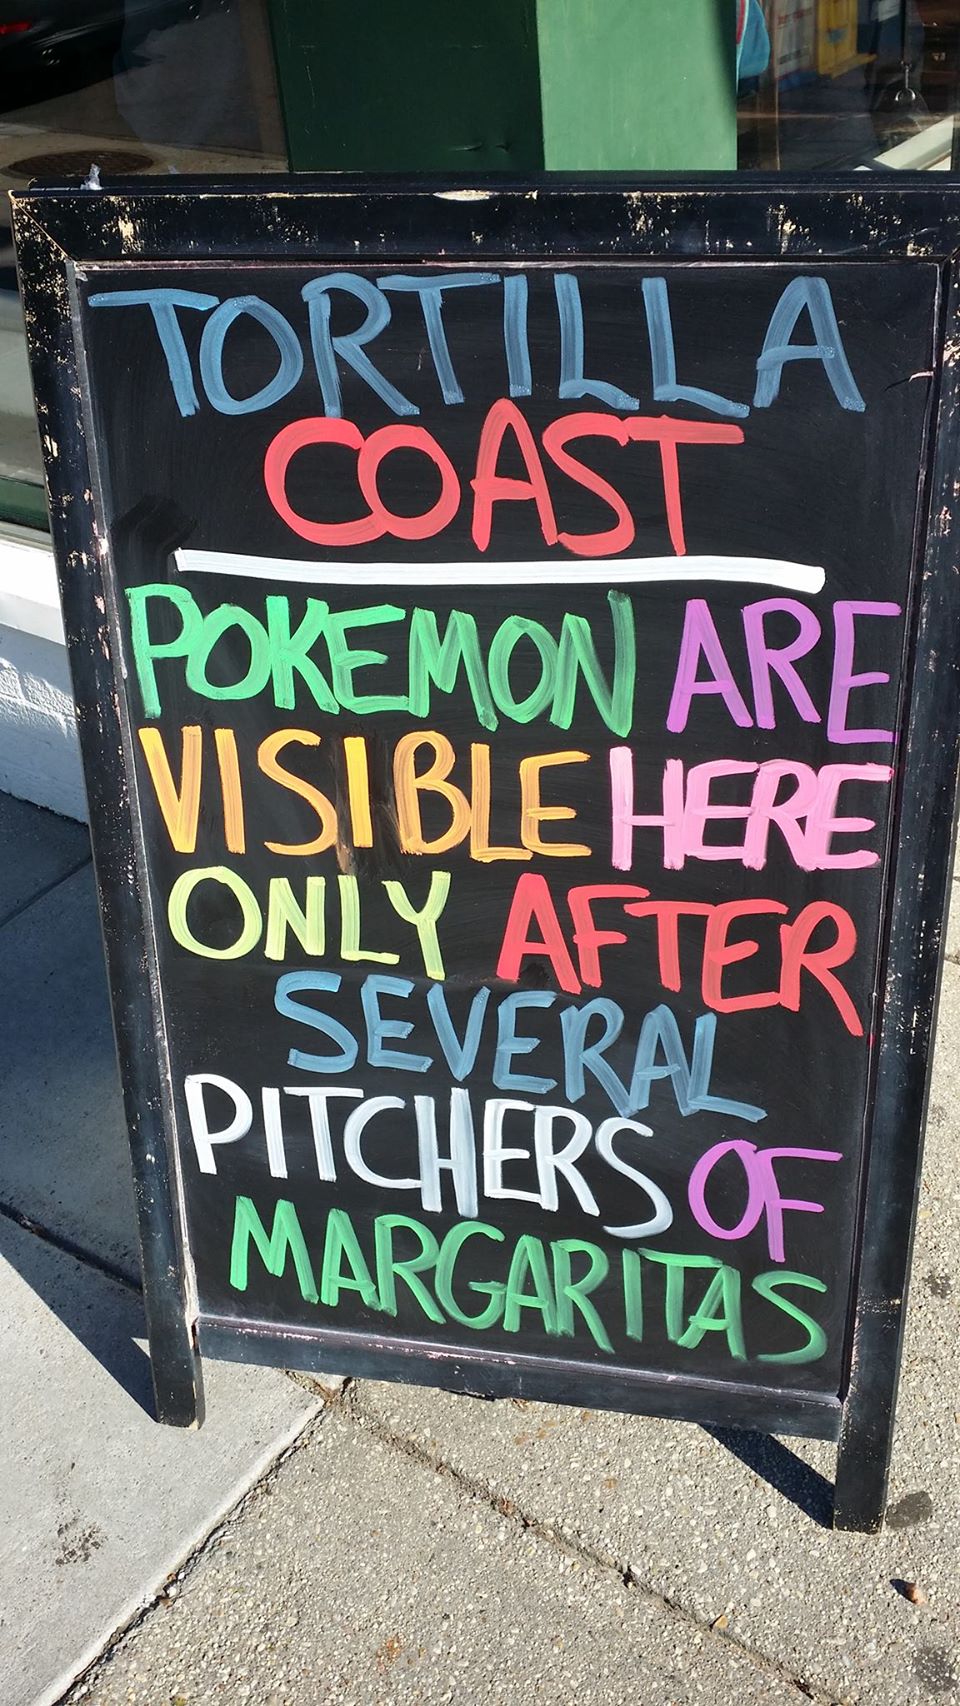 TORTILLA
COAST
POKEMON ARE
VISIBLE HERE
ONLY AFTER
SEVERAL
PITCHERS OF
MARGARITAS